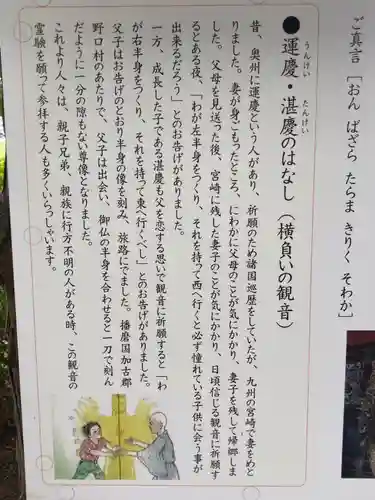 ご真言 [おん ばざら たらま きりく そわか]
●運慶・湛慶のはなし(横負いの観音)
うんけい たんけい
昔、奥州に運慶という人があり、祈願のため諸国巡歴をしていたが、九州の宮崎で妻をめと
りました。妻が身ごもったところ、にわかに父母のことが気にかかり、妻子を残して帰郷しま
した。父母を見送った後、宮崎に残した妻子のことが気にかかり、日頃信じる観音に祈願す
るとある夜、「わが左半身をつくり、それを持って西へ行くと必ず憧れている子供に会う事が
出来るだろう」とのお告げがありました。
一方、成長した子である湛慶も父を恋する思いで観音に祈願すると「わ
が右半身をつくり、それを持って東へ行くべし」とのお告げがありました。
父子はお告げのとおり半身の像を刻み、旅路にでました。播磨国加古郡
野口村のあたりで、父子は出会い、御仏の半身を合わせると一刀で刻ん
だように一分の隙もない尊像となりました。
これより人々は、親子兄弟、親族に行方不明の人がある時、この観音の
霊験を願って参拝する人も多くいらっしゃいます。